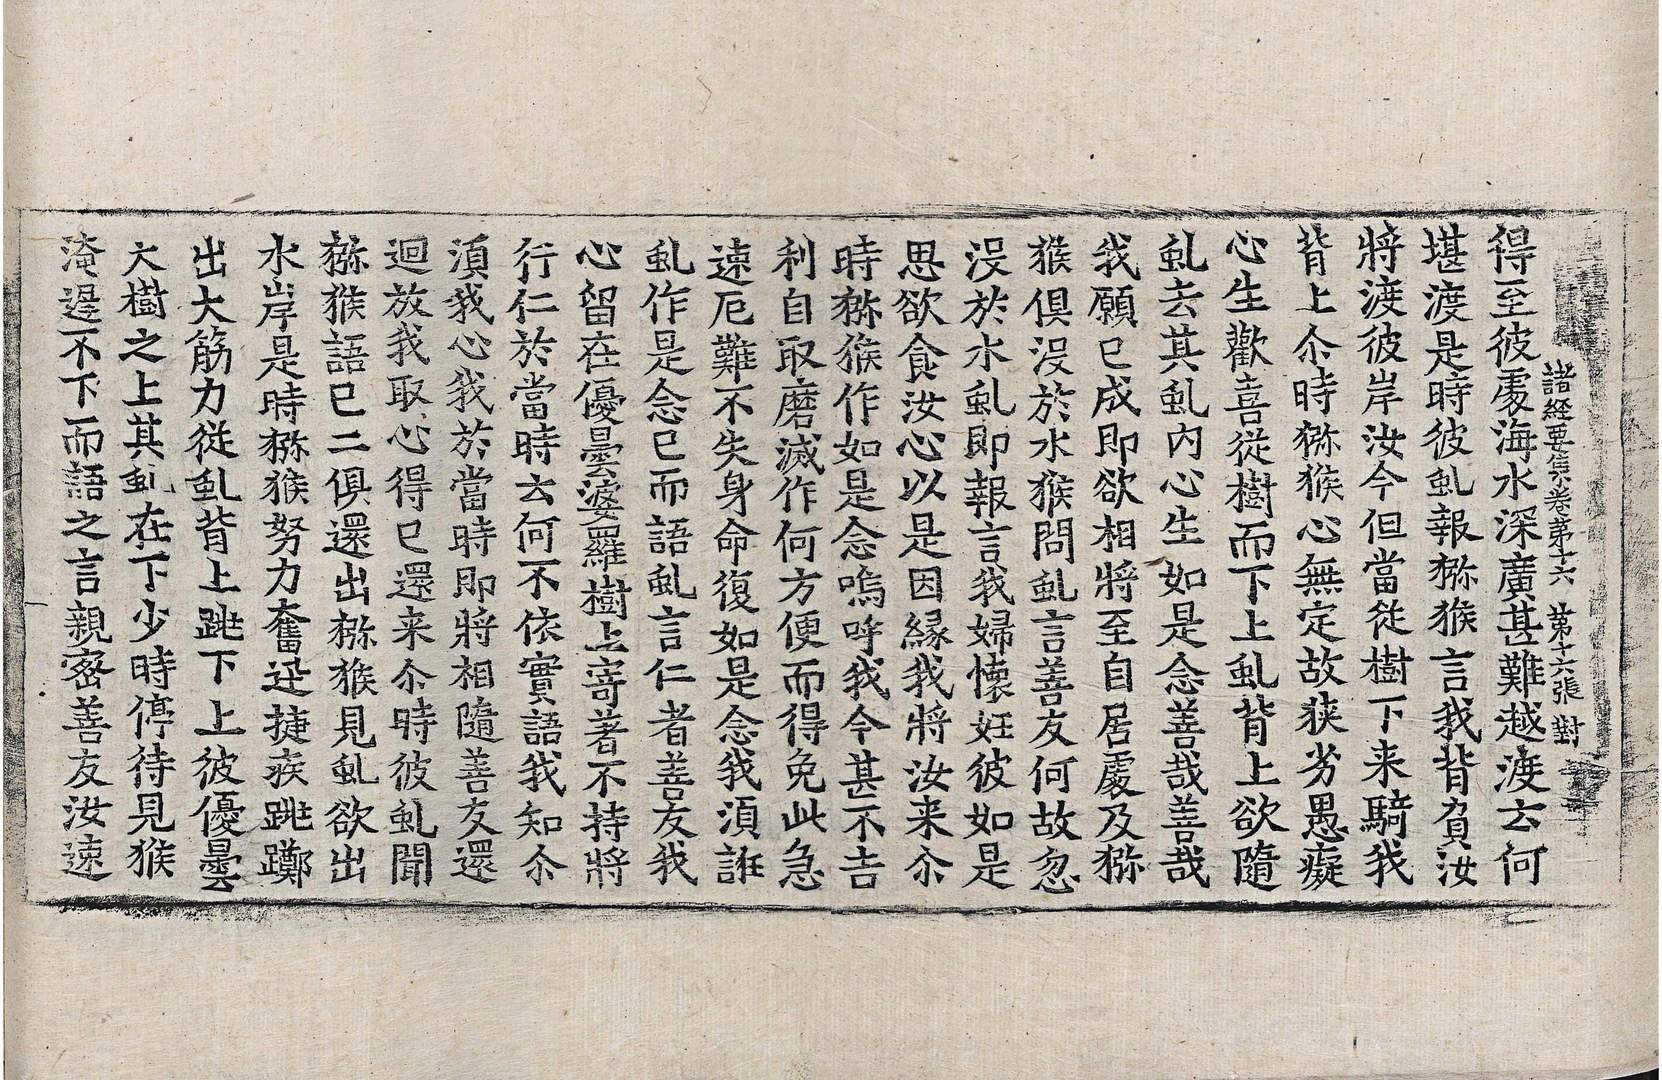 諸經要集卷第十六 第十六張 對
得至彼處海水深廣甚難越渡云何
堪渡是時彼虬報猕猴言我背負汝
將渡彼岸汝今但當從樹下来騎我
背上尒時猕猴心無定故狭劣愚癡
心生歡喜從樹而下上虬背上欲隨
虬去其虬内心生如是念善哉善哉
我願已成即欲相將至自居處及猕
猴俱没於水猴問虬言善友何故忽
没於水虬即報言我婦懷妊彼如是
思欲食汝心以是因縁我將汝来尒
時猕猴作如是念嗚呼我今甚不吉
利自取磨滅作何方便而得免此急
速厄難不失身命復如是念我湏誑
虬作是念已而語虬言仁者善友我
心留在優曇婆羅樹上寄著不持將
行仁於當時云何不依實語我知尒
湏我心我於當時即將相隨善友還
迴放我取心得已還来尒時彼虬聞
猕猴語已二俱還出猕猴見虬欲出
水岸是時猕猴努力奮迅捷疾跳躑
出大筋力從虬背上跳下上彼優曇
大樹之上其虬在下少時停待見猴
淹遟不下而語之言親密善友汝速